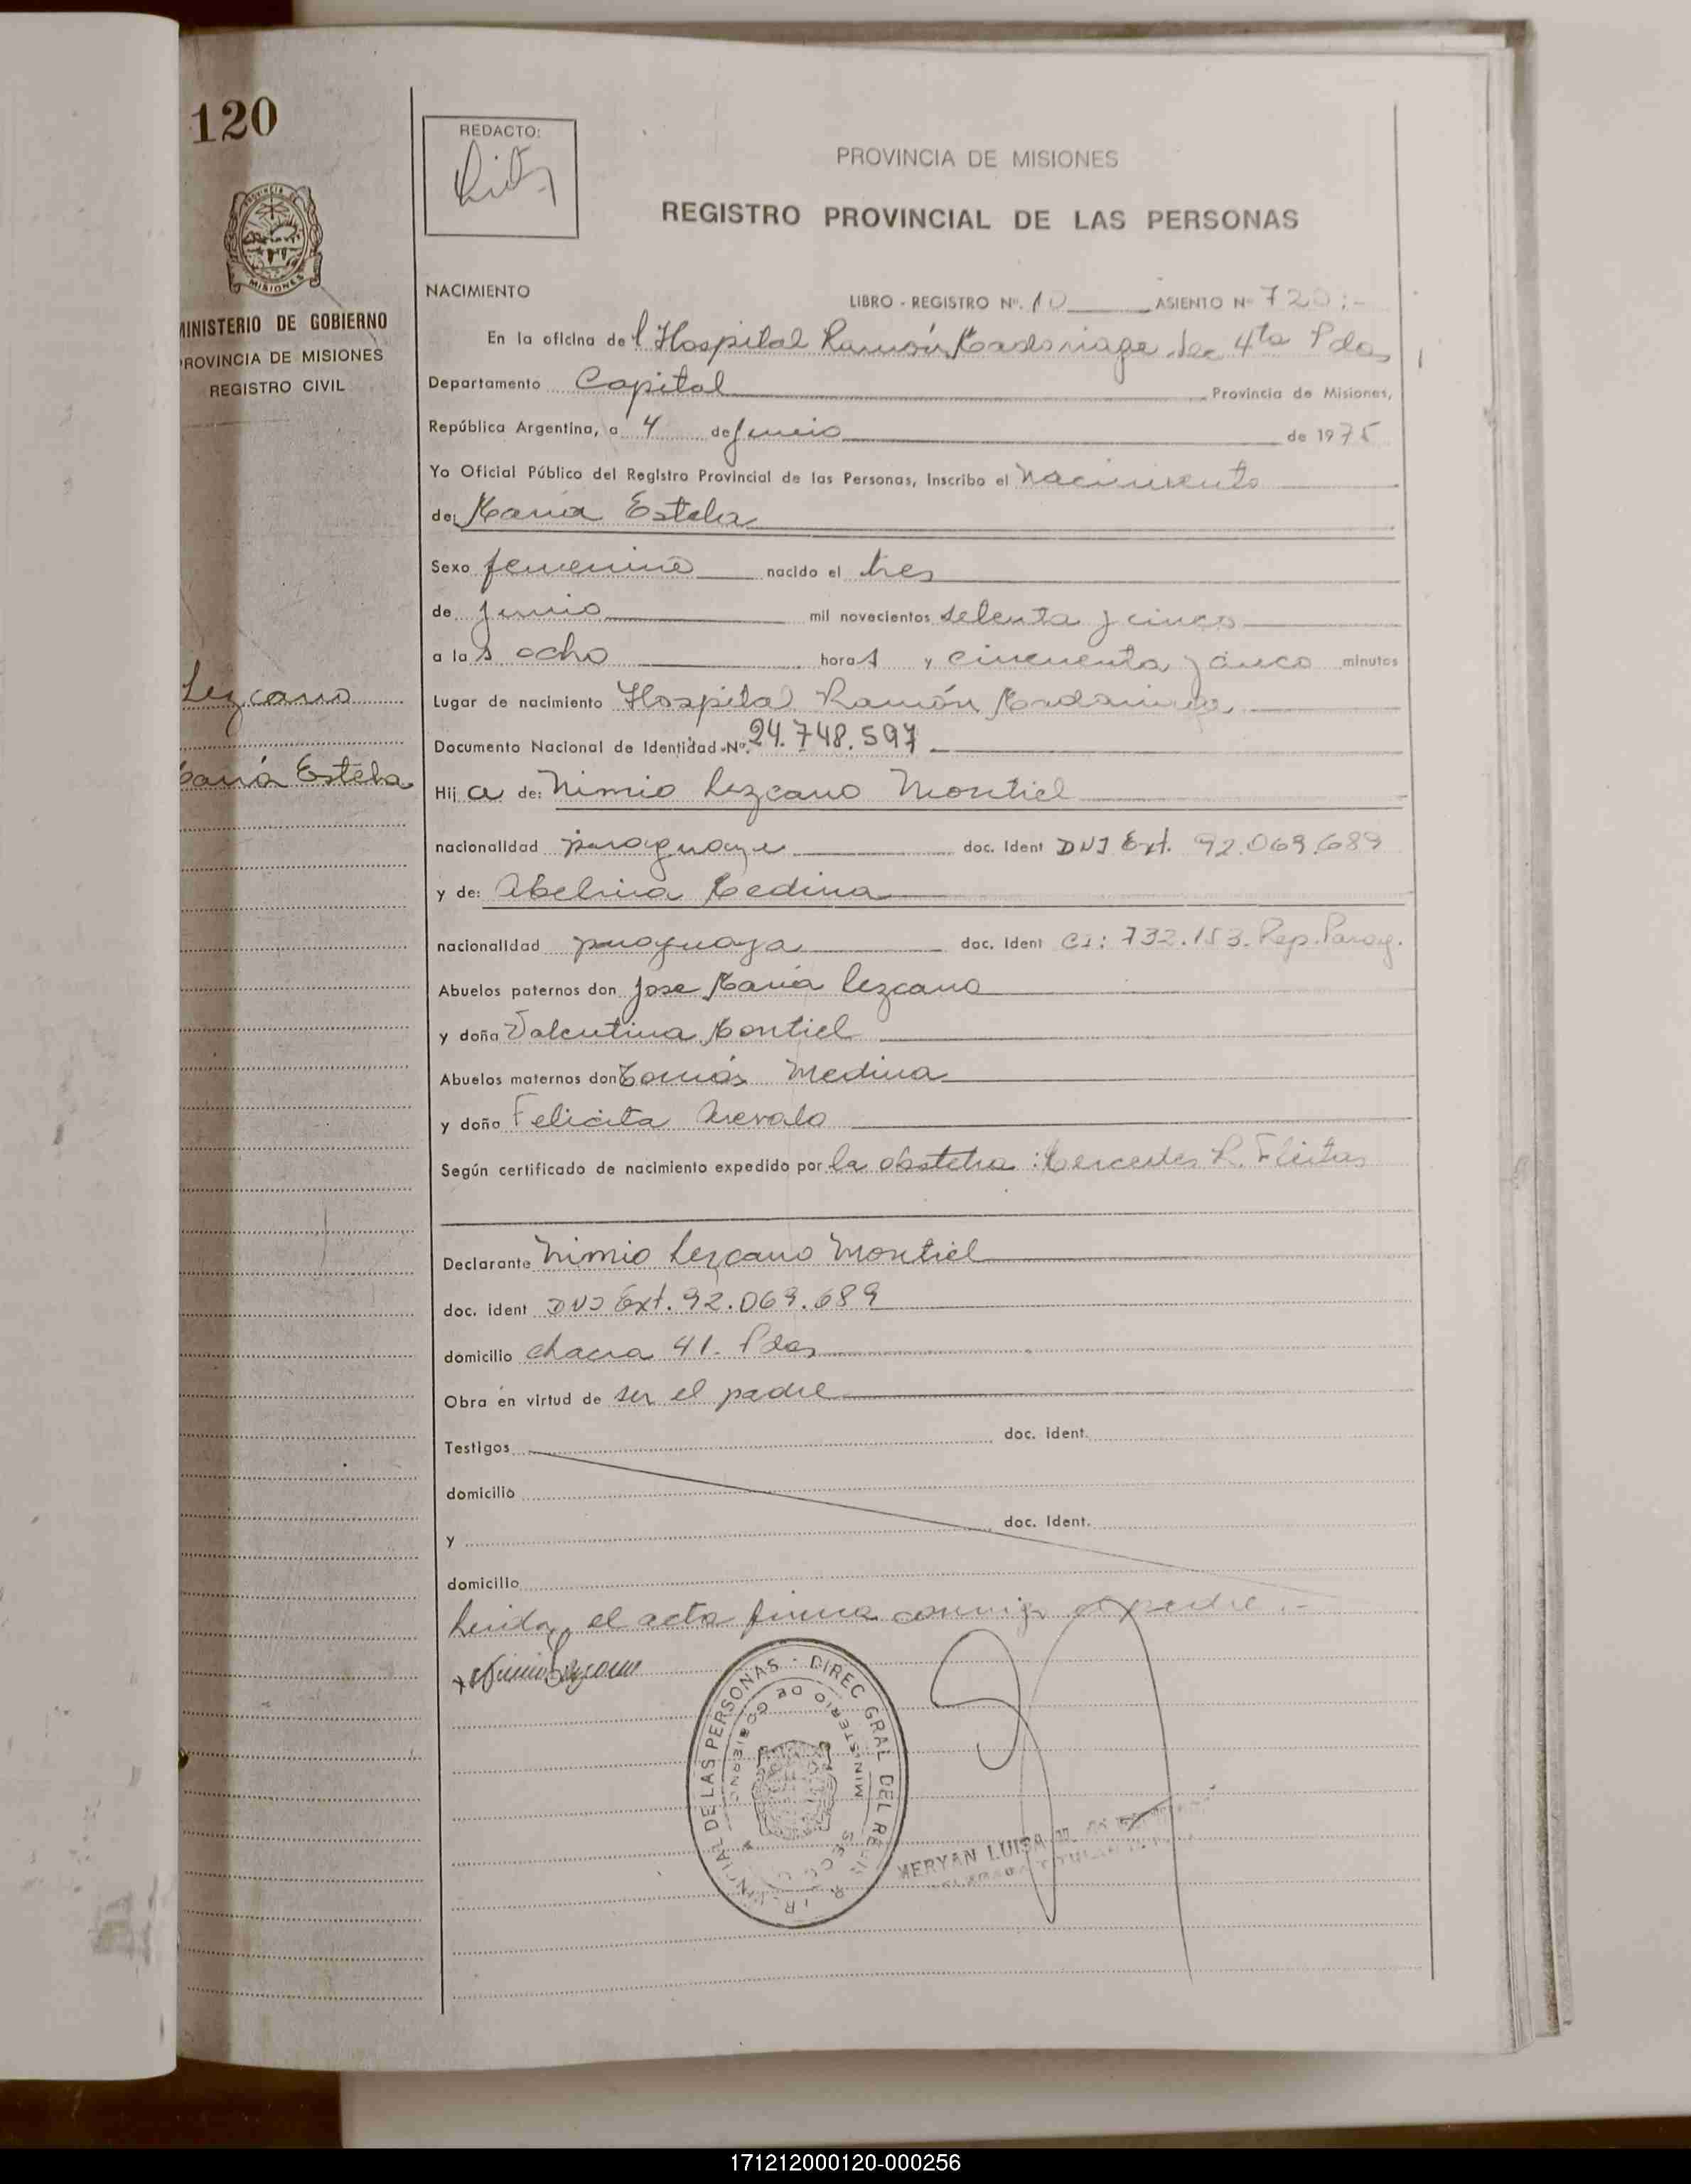 120
REDACTO:
PROVINCIA DE MISIONES
REGISTRO PROVINCIAL DE LAS PERSONAS
MINISTERIO DE GOBIERNO
PROVINCIA DE MISIONES
REGISTRO CIVIL
Lezcano
María Estela
NACIMIENTO
LIBRO - REGISTRO Nº. 10 ASIENTO Nº 720:-
En la oficina del Hospital Ramón Madariaga Sec 4ta Pdas
Departamento Capital Provincia de Misiones,
República Argentina, a 4 de Junio de 1975
Yo Oficial Público del Registro Provincial de las Personas, Inscribo el Nacimiento
de: María Estela
Sexo femenino nacido el tres
de junio mil novecientos setenta y cinco
a las ocho horas y cincuenta y cinco minutos
Lugar de nacimiento Hospital Ramón Madariaga
Documento Nacional de Identidad Nº. 24.748.597
Hija de: Nimio Lezcano Montiel
nacionalidad paraguaya doc. Ident DNI Ext. 92.069.689
y de: Abelina Medina
nacionalidad paraguaya doc. Ident CI: 732.153. Rep. Parag.
Abuelos paternos don Jose María Lezcano
y doña Valentina Montiel
Abuelos maternos don Tomás Medina
y doña Felicita Arevalo
Según certificado de nacimiento expedido por la obstetra: Mercedes R. Fleitas
Declarante Nimio Lezcano Montiel
doc. ident DNI Ext. 92.069.689
domicilio chacra 41. Pdas
Obra en virtud de ser el padre
Testigos doc. ident.
domicilio
y doc. Ident.
domicilio
Leida el acta firma conmigo el padre.-
Nimio Lezcano
DIREC GRAL DEL REG PROVINCIAL DE LAS PERSONAS
MINISTERIO DE GOBIERNO
MERYAN LUISA
171212000120-000256